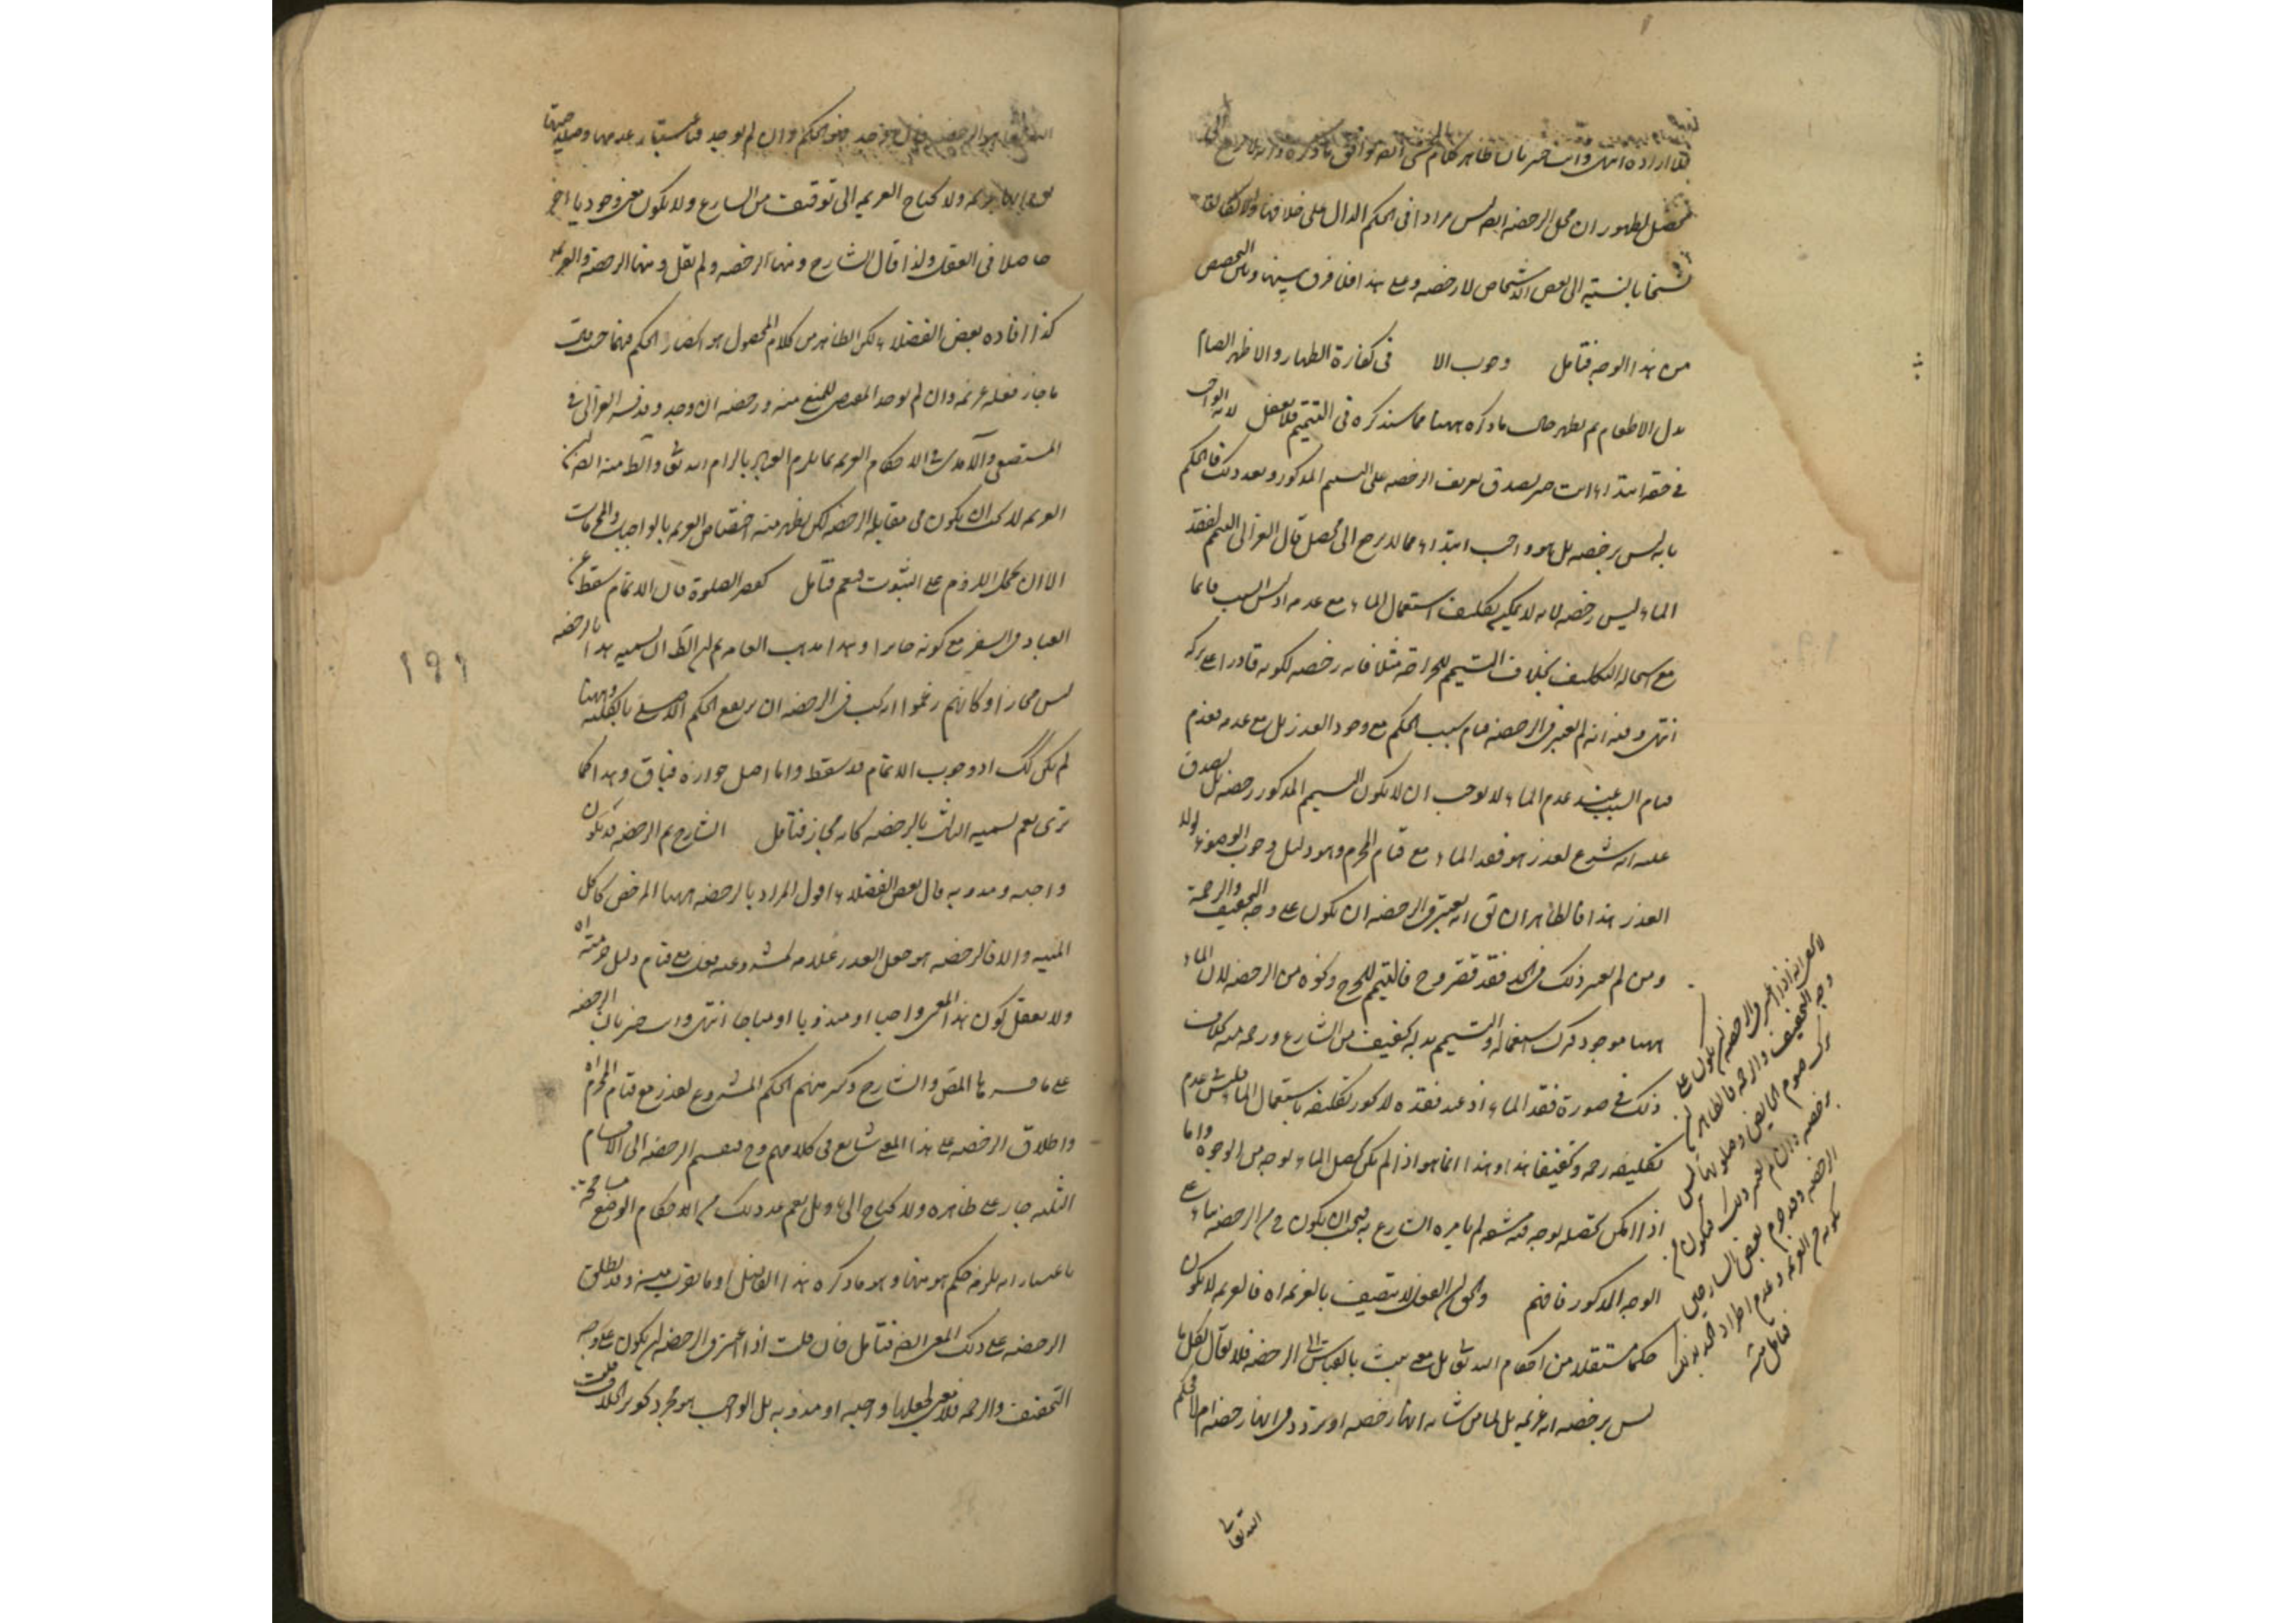 فلا ارادة انتهى وانت خبير بان ظاهر كلام
محصل لظهور ان محل الرخصة ايضا ليس مرادا فى الحكم الدال على خلافها
نسخا بالنسبة الى بعض الاشخاص لا رخصة ومع هذا فلا فرق بينها وبين التخصيص
من هذا الوجه فتامل وجوب الا فى كفارة الظهار والاظهر الصيام
بدل الاطعام ثم يظهر حال ما ذكره ههنا مما سنذكره فى التتميم فلا تغفل لانه الواجب
فى حقه ابتداء انت خبير بصدق تعريف الرخصة على التيمم المذكور وبعد ذلك فالحكم
بانه ليس برخصة بل هو واجب ابتداء مما لا يرجع الى محصل قال الغزالى التيمم لفقد
الماء ليس رخصة لانه لا يمكن تكليف استعمال الماء مع عدمه اذ ليس السبب قائما
مع استحالة التكليف بخلاف التيمم للجراحة مثلا فانه رخصة لكونه قادرا على تركه
انتهى وفيه انه لم يعتبر فى الرخصة قيام سبب الحكم مع وجود العذر بل مع عدمه فعدم
قيام السبب عند عدم الماء لا يوجب ان لا يكون التيمم المذكور رخصة بل يصدق
عليه انه شرع لعذر هو فقد الماء مع قيام المحرم وهو دليل وجوب الوضوء لولا
العذر هذا فالظاهر ان يق انه يعتبر فى الرخصة ان يكون على وجه التخفيف والرحمة
ومن لم يعتبر ذلك فى الحد فقد قصر وح فالتيمم للجرح ونحوه من الرخصة لان الماء
ههنا موجود فترك استعماله والتيمم بدله تخفيف من الشارع ورحمة منه بخلاف
ذلك فى صورة فقد الماء اذ عند فقده لا يجوز تكليفه باستعمال الماء فليس عدم
تكليفه رحمة وتخفيفا هذا وهذا انما هو اذا لم يكن تحصيل الماء بوجه من الوجوه واما
اذا امكن تحصيله بوجه فيه مشقة لم يامره الشارع به فيجب ان يكون ح من الرخصة بناء على
الوجه المذكور فافهم والحق ان الفعل لا يتصف بالعزيمة اه فالعزيمة لا يكون
حكما مستقلا من احكام الله تع بل معنى يثبت بالقياس الى الرخصة فلا يقال لكل ما
ليس برخصة انه عزيمة بل لما من شانه انها رخصة او تردد فى انها رخصة ام لا فحكم
لا يخفى انه اذا اعتبر فى الرخصة ان يكون على
وجه التخفيف والرحمة فالظاهر ان
ترك صوم الحايض وصلوتها ليس
برخصة وان لم يعتبر ذلك فيكون من
الرخصة وقد جزم بعض الشارحين
بكونه من العزيمة وعدم اطراد الحد بذلك
فتامل منه
الله تعالى
هو الرخصة فان وجد فهو الحكم وان لم يوجد فباعتبار عدمها وصلاحيتها
ولا يحتاج العزيمة الى توقيف من الشارع ولا يكون معنى وجوديا اخر
حاصلا فى الفعل ولذا قال الشارح ومنها الرخصة ولم يقل ومنها الرخصة والعزيمة
كذا افاده بعض الفضلاء لكن الظاهر من كلام المحصول هو انحصار الحكم فيهما حيث قال
ما جاز فعله عزيمة وان لم يوجد المقتضى للمنع منه ورخصة ان وجد وفسره الغزالى فى
المستصفى والآمدى فى الاحكام العزيمة بما يلزم العباد بالزام الله تع والظ منه ايضا ان
العزيمة لا يجب ان يكون فى مقابلة الرخصة لكن يظهر منه اختصاص العزيمة بالواجبات والمحرمات
الا ان يحمل اللزوم على الثبوت فيعم فتامل كقصر الصلوة فان الاتمام سقط عن
العباد فى السفر مع كونه جايزا وهذا مذهب العامة ثم ان الظ ان تسمية هذا بالرخصة
ليس مجازا وكانهم زعموا انه يجب فى الرخصة ان يرتفع الحكم الاصلى بالكلية وههنا
لم يكن كك اذ وجوب الاتمام قد سقط واما اصل جوازه فباق وهذا كما
ترى نعم تسمية الثالث بالرخصة كانه مجاز فتامل الشارح ثم الرخصة قد يكون
واجبة ومندوبة قال بعض الفضلاء اقول المراد بالرخصة ههنا المرخص كاكل
الميتة والا فالرخصة هو جعل العذر علامة لمشروعية فعل مع قيام دليل حرمته اه
ولا يعقل كون هذا المعنى واجبا او مندوبا او مباحا انتهى وانت خبير بان الرخصة
على ما فسرها المص والشارح وكثير منهم الحكم المشروع لعذر مع قيام المحرم اه
واطلاق الرخصة على هذا المعنى شايع فى كلامهم وح فتقسيم الرخصة الى الاقسام
الثلثة جار على ظاهره ولا يحتاج الى تاويل نعم عد ذلك من الاحكام الوضعية مسامحة
باعتبار انه يلزمه حكم هو منها وهو ما ذكره هذا القائل او ما يقرب منه وقد يطلق
الرخصة على ذلك المعنى ايضا فتامل فان قلت اذا اعتبر فى الرخصة ان يكون على وجه
التخفيف والرحمة فلا معنى لجعلها واجبة او مندوبة بل الواجب هو مجرد تجويز الخلاف قلت
١٩١